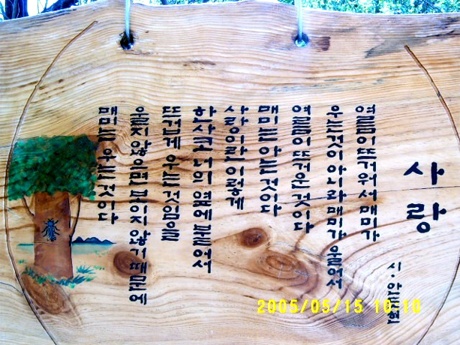 사랑
시·안도현
여름이 뜨거워서 매미가
우는것이 아니라 매미가 울어서
여름이 뜨거운 것이다
매미는 아는 것이다
사랑이란 이렇게
한사코 너의 옆에 붙어서
뜨겁게 우는 것임을
울지 않으면 보이지 않기 때문에
매미는 우는 것이다
2005/05/15 10:16